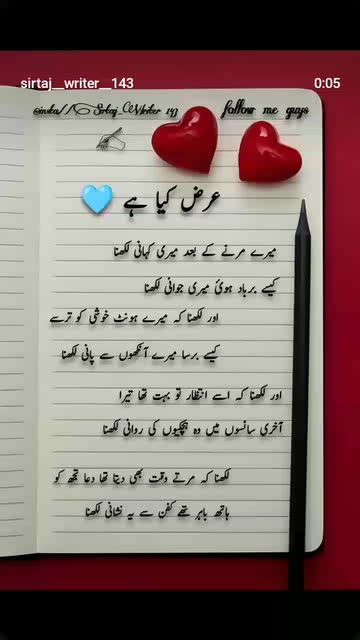 sirtaj__writer_143
0:05
@insta//Sirtaj_Writer 143
follow me guys
عرض کیا ہے
میرے مرنے کے بعد میری کہانی لکھنا
کیسے برباد ہوئ میری جوانی لکھنا
اور لکھنا کہ میرے ہونٹ خوشی کو ترسے
کیسے برسا میرے آنکھوں سے پانی لکھنا
اور لکھنا کہ اسے انتظار تو بہت تھا تیرا
آخری سانسوں میں وہ ہچکیوں کی روانی لکھنا
لکھنا کہ مرتے وقت بھی دیتا تھا دعا تجھ کو
ہاتھ باہر تھے کفن سے یہ نشانی لکھنا